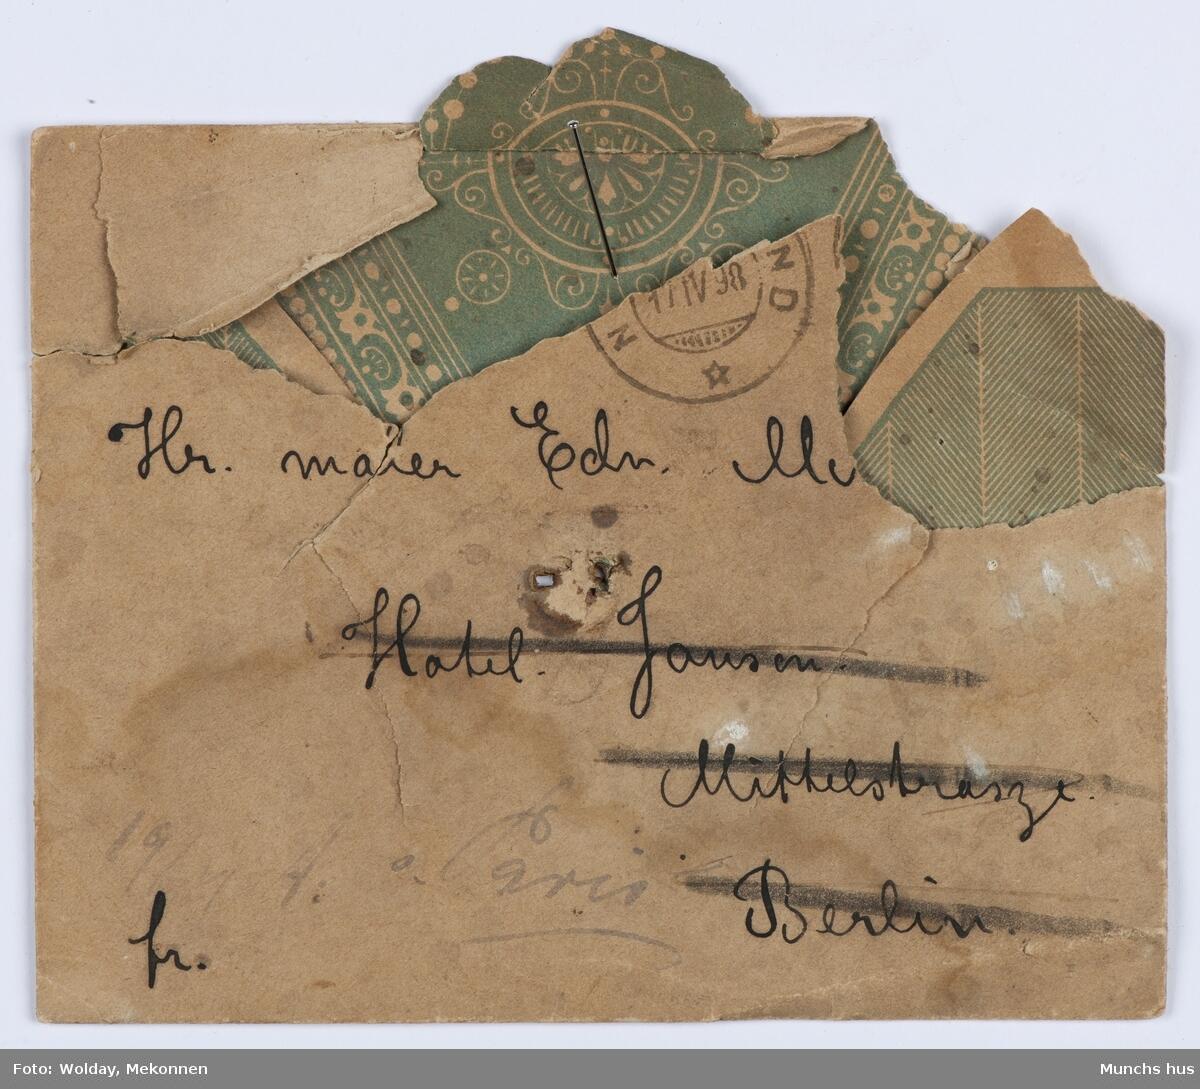 17 IV 98
N
ND
Hr. maler Edv. Mu
Hotel. Janson.
Mittelstrasze.
Paris
Berlin.
fr.
Foto: Wolday, Mekonnen
Munchs hus